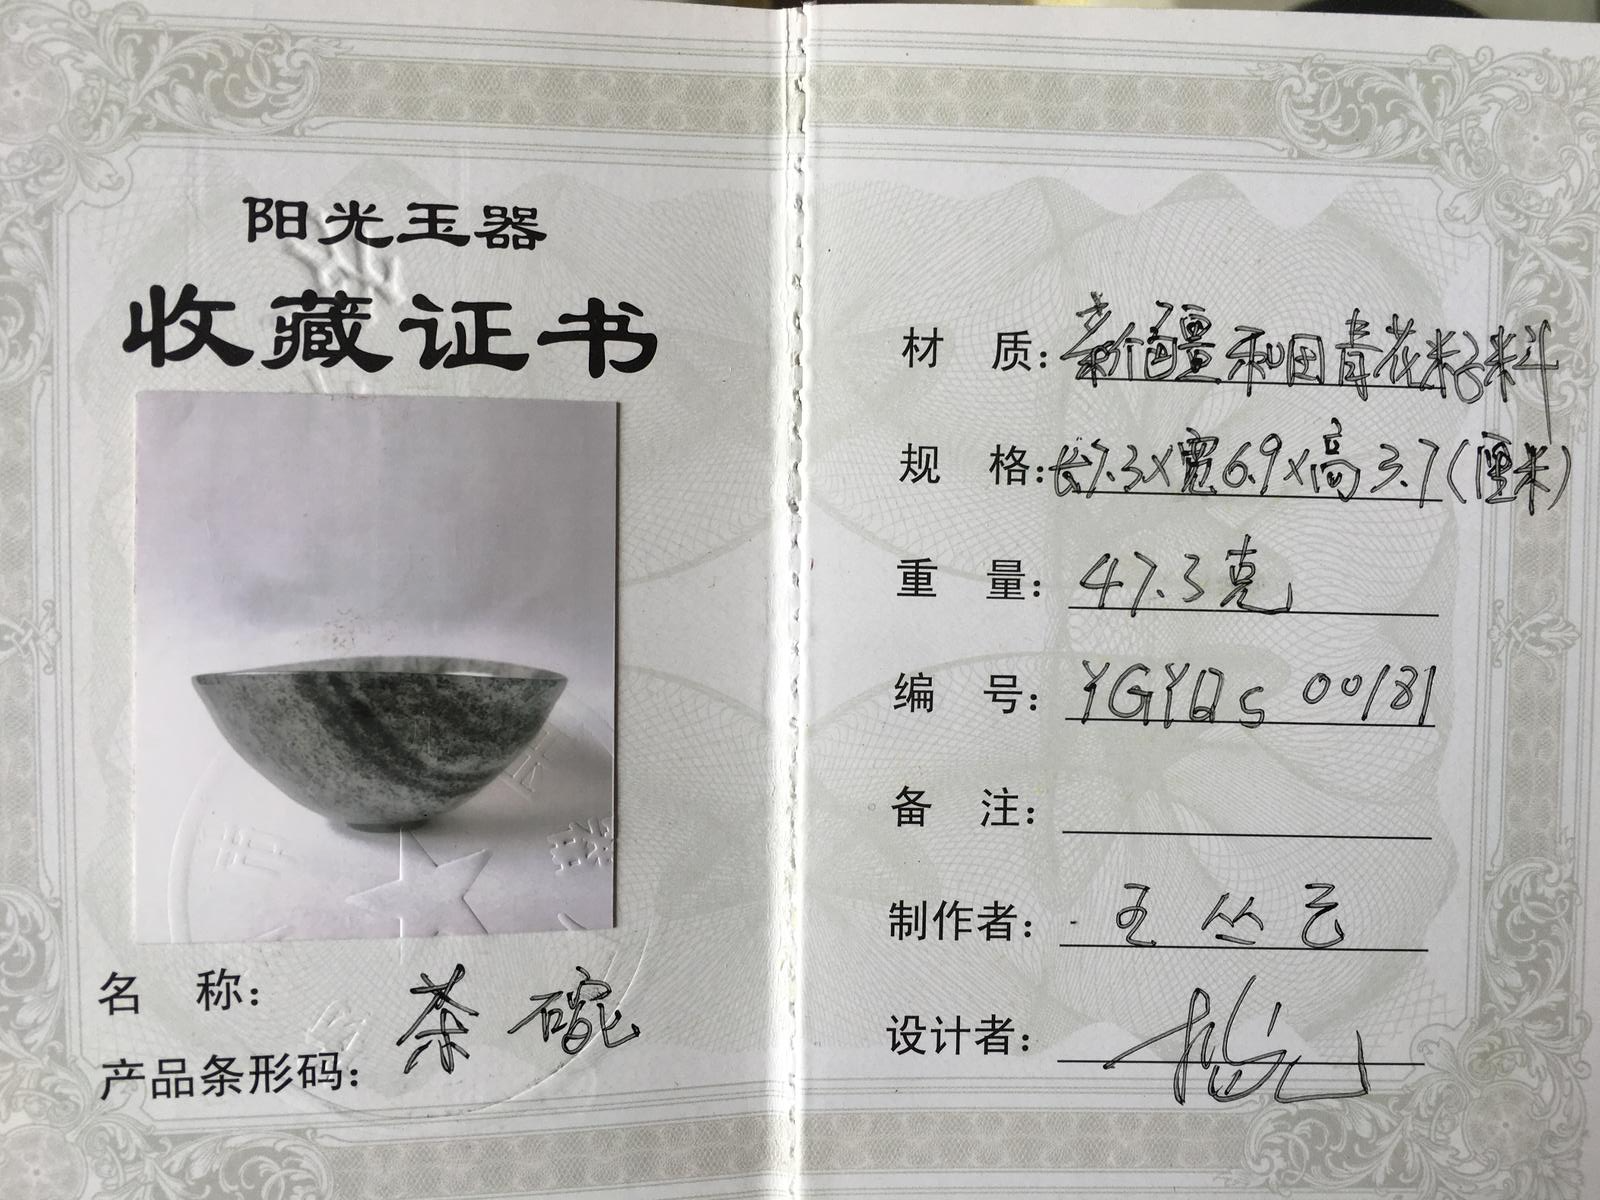 阳光玉器
收藏证书
名 称： 茶碗
产品条形码：
材 质：新疆和田青花籽料
规 格：长7.3X宽6.9X高3.7(厘米)
重 量：47.3克
编 号：YGYQS 00181
备 注：
制作者： 王丛云
设计者：